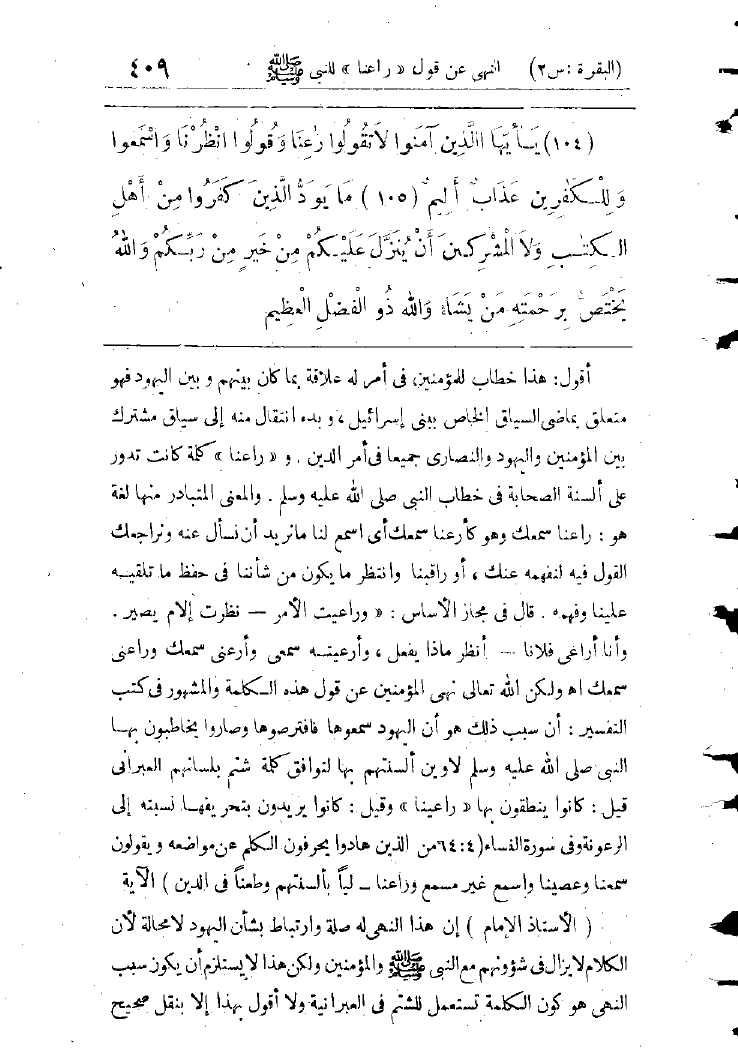 (البقرة : س ٢) النهى عن قول « راعنا » للنبى ﷺ ٤٠٩
(١٠٤) يَـٰأَيُّهَا الَّذِينَ آمَنُوا لَا تَقُولُوا رَاعِنَا وَقُولُوا انْظُرْنَا وَاسْمَعُوا
وَلِلْكَـٰفِرِينَ عَذَابٌ أَلِيمٌ (١٠٥) مَا يَوَدُّ الَّذِينَ كَفَرُوا مِنْ أَهْلِ
الْكِتَـٰبِ وَلَا الْمُشْرِكِينَ أَنْ يُنَزَّلَ عَلَيْكُمْ مِنْ خَيْرٍ مِنْ رَبِّكُمْ وَاللهُ
يَخْتَصُّ بِرَحْمَتِهِ مَنْ يَشَاءُ وَاللهُ ذُو الْفَضْلِ الْعَظِيم
أقول : هذا خطاب للمؤمنين فى أمر له علاقة بما كان بينهم و بين اليهود فهو
متعلق بماضى السياق الخاص ببنى إسرائيل ، و بدء انتقال منه إلى سياق مشترك
بين المؤمنين واليهود والنصارى جميعا فى أمر الدين . و « راعنا » كلمة كانت تدور
على ألسنة الصحابة فى خطاب النبى صلى الله عليه وسلم . والمعنى المتبادر منها لغة
هو : راعنا سمعك وهو كأرعنا سمعك أى اسمع لنا مانريد أن نسأل عنه ونراجعك
القول فيه لنفهمه عنك ، أو راقبنا وانتظر ما يكون من شأننا فى حفظ ما تلقيـه
علينا وفهمه . قال فى مجاز الأساس : « وراعيت الأمر — نظرت إلام يصير .
وأنا أراعى فلانا — أنظر ماذا يفعل ، وأرعيتـه سمعى وأرعنى سمعك وراعنى
سمعك اه ولكن الله تعالى نهى المؤمنين عن قول هذه الـكلمة والمشهور فى كتب
التفسير : أن سبب ذلك هو أن اليهود سمعوها فافترصوها وصاروا يخاطبون بهـا
النبى صلى الله عليه وسلم لاوين ألسنتهم بها لتوافق كلمة شتم بلسانهم العبرانى
قيل : كانوا ينطقون بها « راعينا » وقيل : كانوا يريدون بتحريفهـا نسبته إلى
الرعونة وفى سورة النساء (٤ : ٦٤ من الذين هادوا يحرفون الكلم عن مواضعه و يقولون
سمعنا وعصينا واسمع غير مسمع وراعنا ــ لياً بألسنتهم وطعناً فى الدين ) الآية
( الأستاذ الإمام ) إن هذا النهى له صلة وارتباط بشأن اليهود لا محالة لأن
الكلام لا يزال فى شؤونهم مع النبى ﷺ والمؤمنين ولكن هذا لا يستلزم أن يكون سبب
النهى هو كون الكلمة تستعمل للشتم فى العبرانية ولا أقول بهذا إلا بنقل صحيح